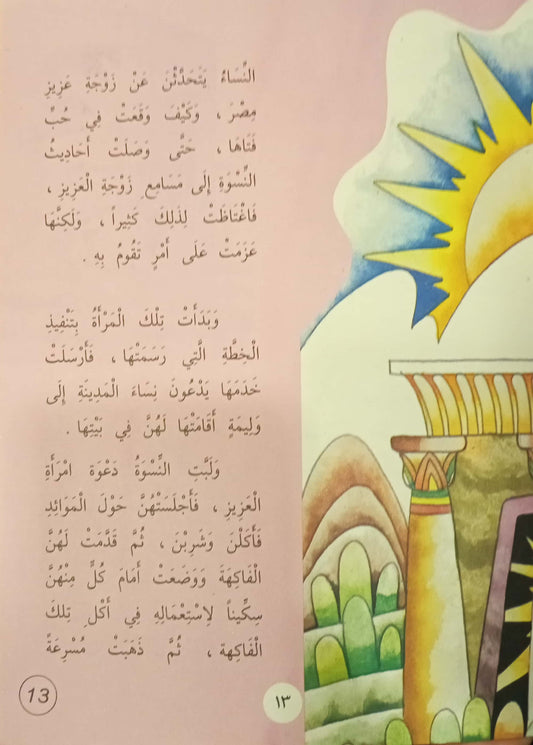 النِّسَاءُ يَتَحَدَّثْنَ عَنْ زَوْجَةِ عَزِيزِ
مِصْرَ ، وَكَيْفَ وَقَعَتْ فِي حُبِّ
فَتَاهَا ، حَتَّى وَصَلَتْ أَحَادِيثُ
النِّسْوَةِ إِلَى مَسَامِعِ زَوْجَةِ الْعَزِيزِ ،
فَاغْتَاظَتْ لِذٰلِكَ كَثِيراً ، وَلٰكِنَّهَا
عَزَمَتْ عَلَى أَمْرٍ تَقُومُ بِهِ .
وَبَدَأَتْ تِلْكَ الْمَرْأَةُ بِتَنْفِيذِ
الْخِطَّةِ الَّتِي رَسَمَتْهَا ، فَأَرْسَلَتْ
خَدَمَهَا يَدْعُونَ نِسَاءَ الْمَدِينَةِ إِلَى
وَلِيمَةٍ أَقَامَتْهَا لَهُنَّ فِي بَيْتِهَا .
وَلَبَّتِ النِّسْوَةُ دَعْوَةَ امْرَأَةِ
الْعَزِيزِ ، فَأَجْلَسَتْهُنَّ حَوْلَ الْمَوَائِدِ
فَأَكَلْنَ وَشَرِبْنَ ، ثُمَّ قَدَّمَتْ لَهُنَّ
الْفَاكِهَةَ وَوَضَعَتْ أَمَامَ كُلٍّ مِنْهُنَّ
سِكِّيناً لِاسْتِعْمَالِهِ فِي أَكْلِ تِلكَ
الْفَاكِهة ، ثُمَّ ذَهَبَتْ مُسْرِعَةً
١٣
13